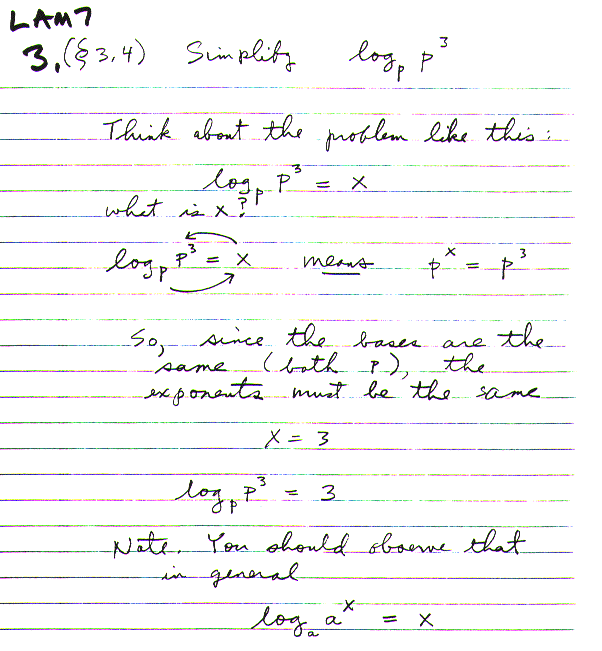 LAM7
3. (§3,4) Simplify log_p p^3
Think about the problem like this:
log_p p^3 = x
what is x?
log_p p^3 = x means p^x = p^3
So, since the bases are the
same (both P), the
exponents must be the same
x = 3
log_p p^3 = 3
Note. You should observe that
in general
log_a a^x = x